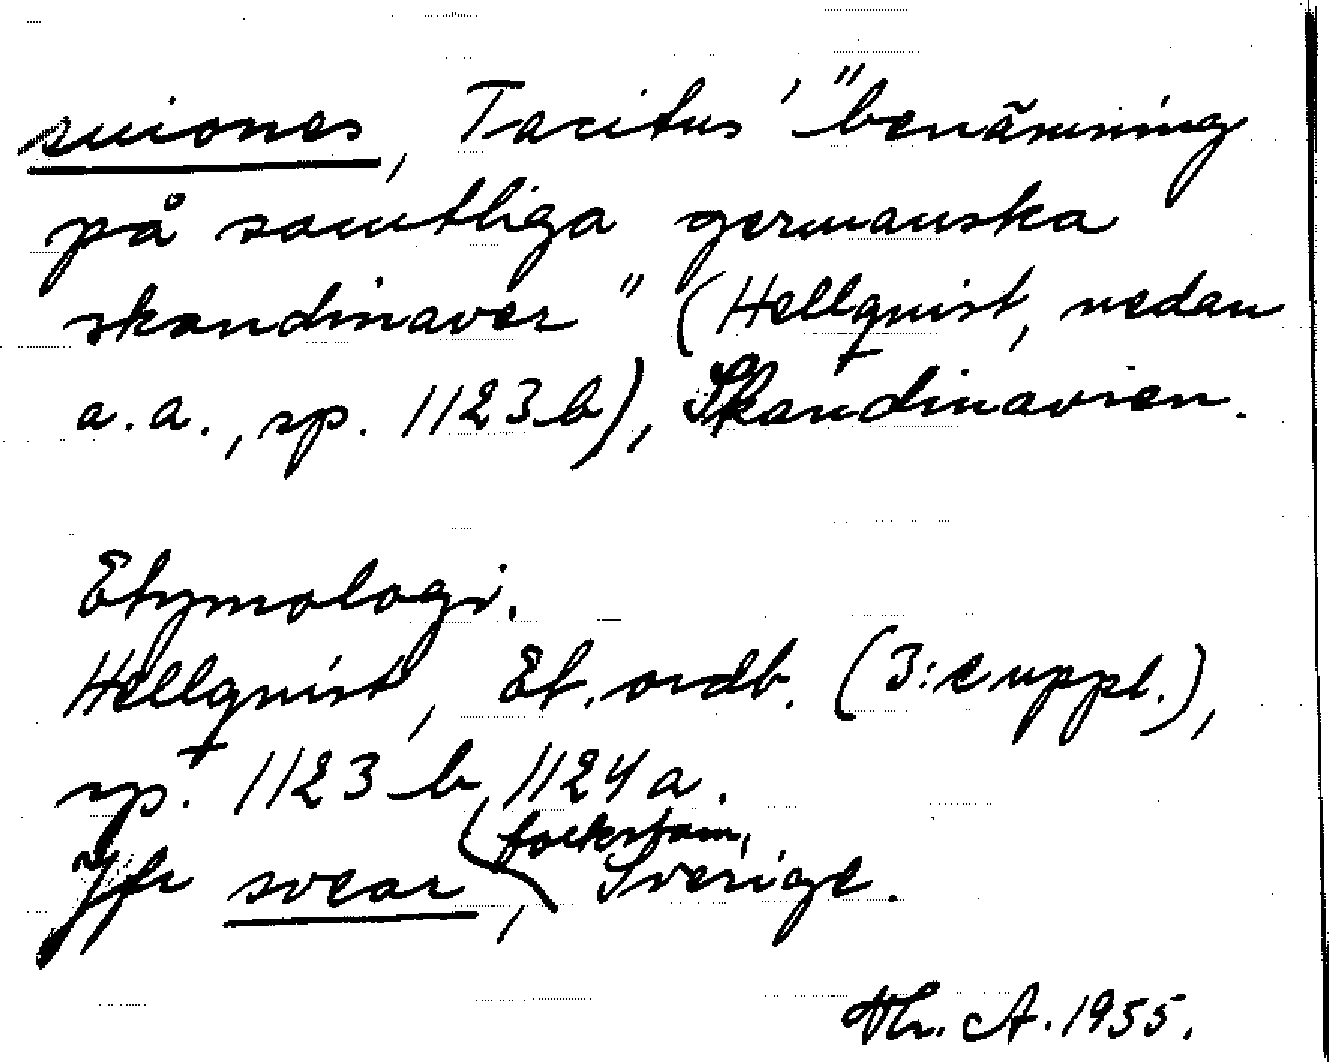 suiones, Tacitus' "benämning
på samtliga germanska
skandinaver" (Hellquist, nedan
a.a., sp. 1123 b), Skandinavien.
Etymologi.
Hellquist, Et. ordb. (3:e uppl.),
sp. 1123 b, 1124 a.
folkstam,
Jfr svear, Sverige.
Th. A. 1955.